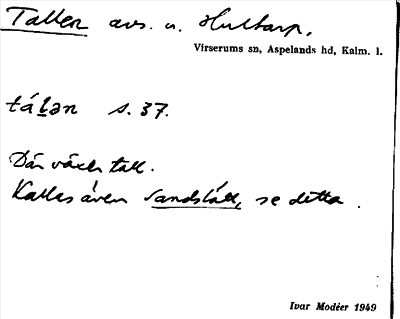 Tallen avs. u. Hultarp.
Virserums sn, Aspelands hd, Kalm. l.
tálən s. 37.
Där växer tall.
Kallas även Sandslätt, se detta.
Ivar Modéer 1949